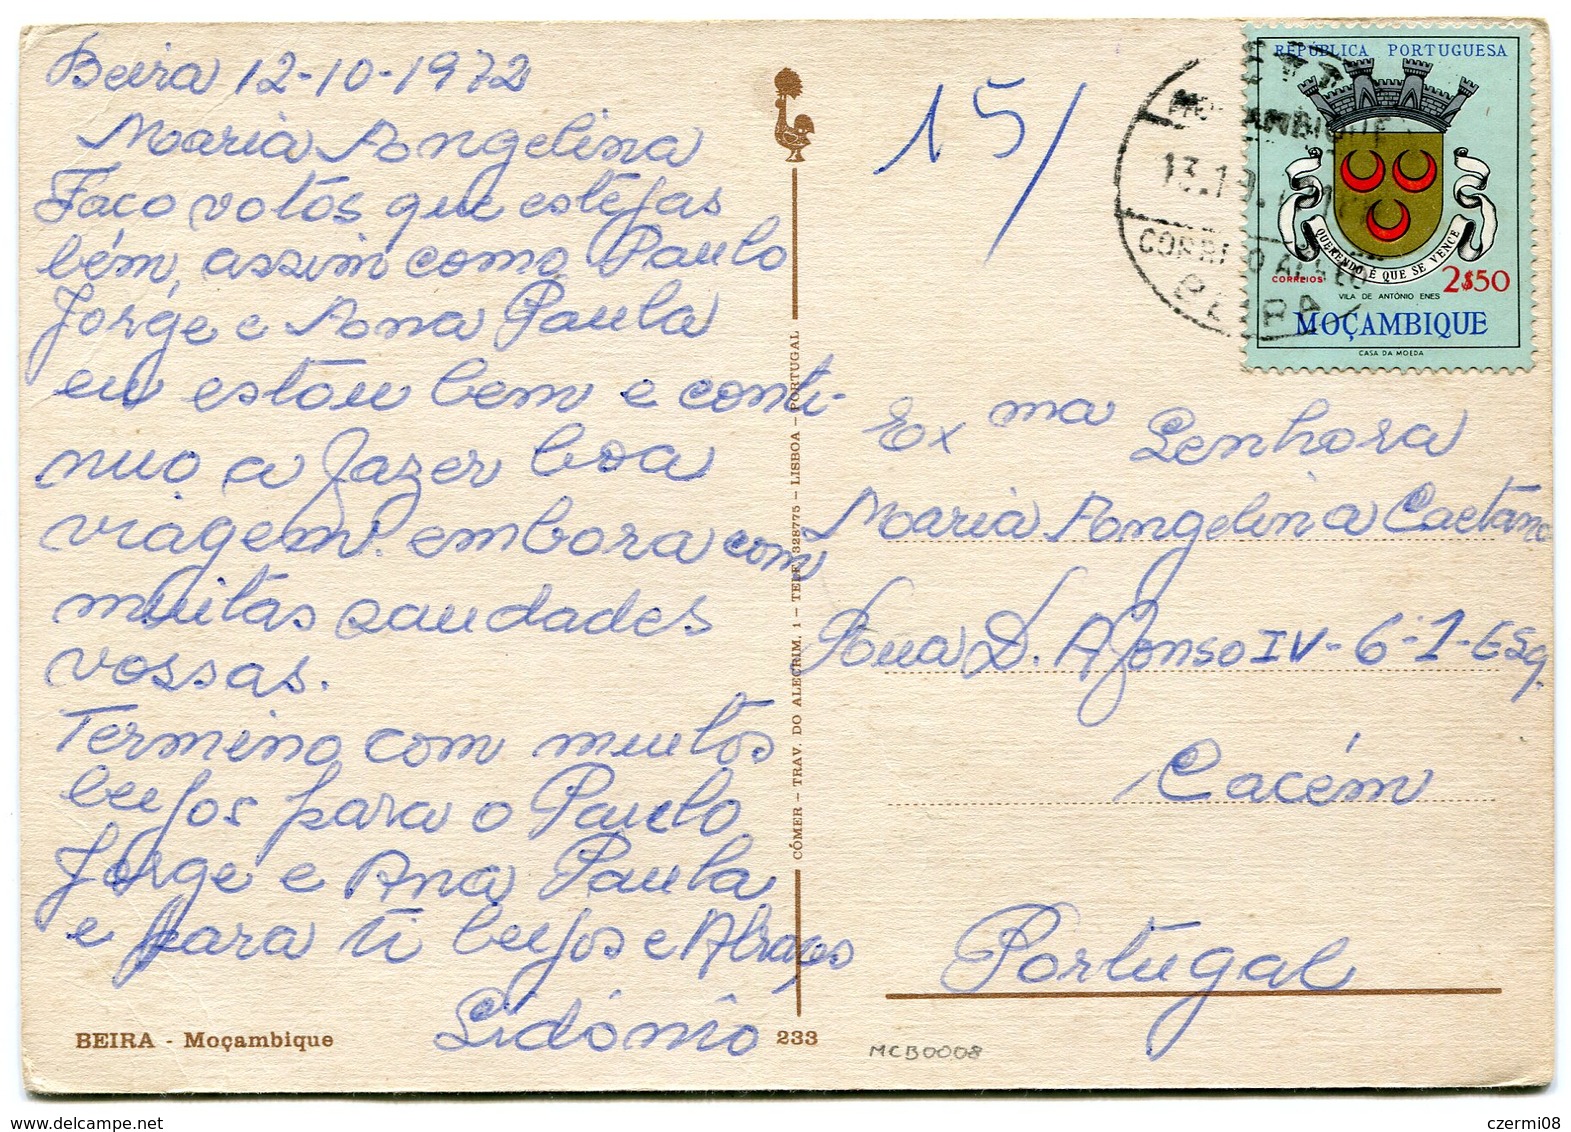 Beira 12-10-1972
Maria Angelina
Faco votos que estejas
bém, assim como Paulo
Jorge e Ana Paula
eu estou bem e conti-
nuo a fazer boa
viagem. embora com
muitas saudades
vossas.
Termino com muitos
beijos para o Paulo
Jorge e Ana Paula
e para ti beijos e Abraços
Lidónio
BEIRA - Moçambique
233
CÓMER - TRAV. DO ALECRIM, 1 - TELF. 328775 - LISBOA - PORTUGAL
15/
REPÚBLICA PORTUGUESA
QUERENDO É QUE SE VENCE
CORREIOS
2$50
VILA DE ANTÓNIO ENES
MOÇAMBIQUE
CASA DA MOEDA
BEIRA
Exma Senhora
Maria Angelina Caetano
Rua D. Afonso IV - 6-1-Esq.
Cacém
Portugal
MCB0008
czermi08